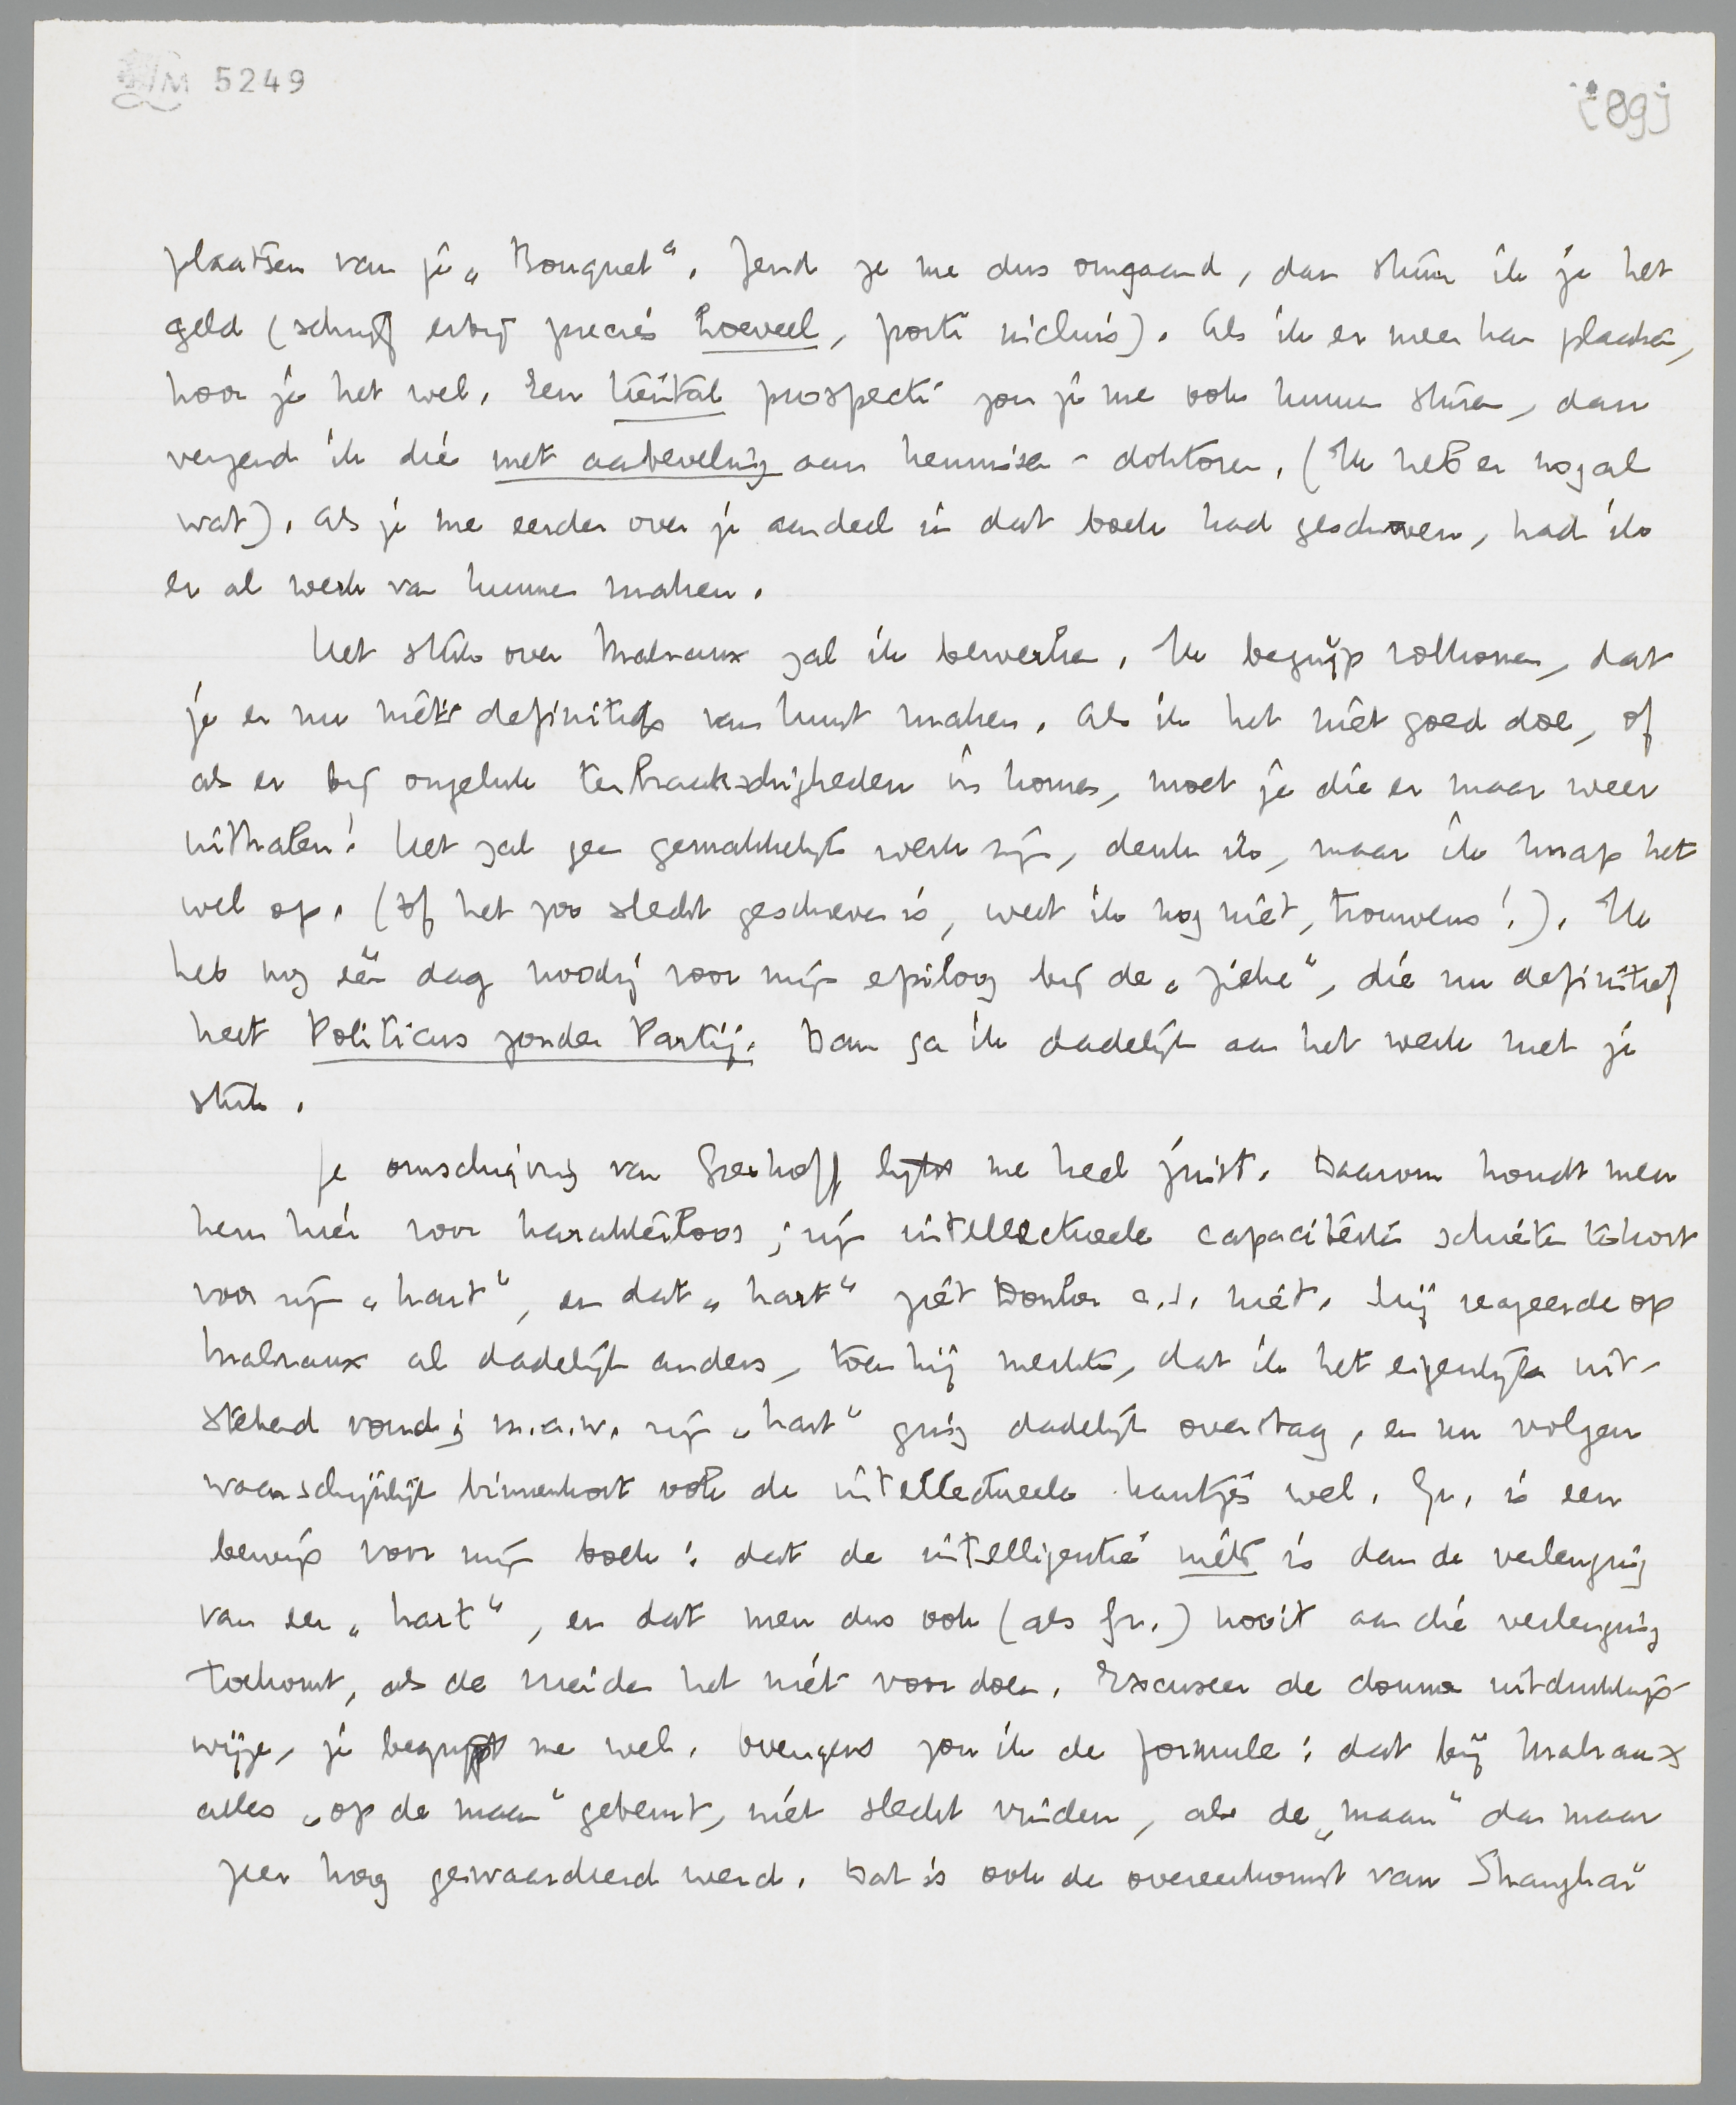 M 5249
[89]
plaatsen van je „Bouquet“. Zend ze me dus omgaand, dan stuur ik je het
geld (schrijf erbij precies hoeveel, porti incluis). Als ik er meer kan plaatsen,
hoor je het wel. Een tiental prospecti zou je me ook kunnen sturen, dan
verzend ik die met aanbeveling aan kennissen-doktoren. (Ik heb er nogal
wat). Als je me eerder over je aandeel in dat boek had geschreven, had ik
er al werk van kunnen maken.
Het stuk over Malraux zal ik bewerken. Ik begrijp volkomen, dat
je er nu niets definitiefs van kunt maken. Als ik het niet goed doe, of
als er bij ongeluk ter Braakschigheden in komen, moet je die er maar weer
uithalen! Het zal geen gemakkelijk werk zijn, denk ik, maar ik knap het
wel op. (Of het zoo slecht geschreven is, weet ik nog niet, trouwens!). Ik
heb nog één dag noodig voor mijn epiloog bij de „ziekte“, die nu definitief
heet Politicus zonder Partij. Dan ga ik dadelijk aan het werk met je
stuk.
Je omschrijving van Greshoff lijkt me heel juist. Daarom houdt men
hem hier voor karakterloos; zijn intellectueele capaciteiten schieten tekort
voor zijn „hart“, en dat „hart“ ziet Donker c.s. niet. Hij reageerde op
Malraux al dadelijk anders, toen hij merkte, dat ik het eigenlijk uit-
stekend vond; m.a.w. zijn „hart“ ging dadelijk overstag, en nu volgen
waarschijnlijk binnenkort ook de intellectueele kantjes wel. Gr. is een
bewijs voor mijn boek: dat de intelligentie niets is dan de verlenging
van een „hart“, en dat men dus ook (als Gr.) nooit aan die verlenging
toekomt, als de meiden het niet voor doen. Excuseer de domme uitdrukkings-
wijze, je begrijpt me wel. Overigens zou ik de formule: dat bij Malraux
alles „op de maan“ gebeurt, niet slecht vinden, als de „maan“ dan maar
zeer hoog gewaardeerd werd. Dat is ook de overeenkomst van Shanghai